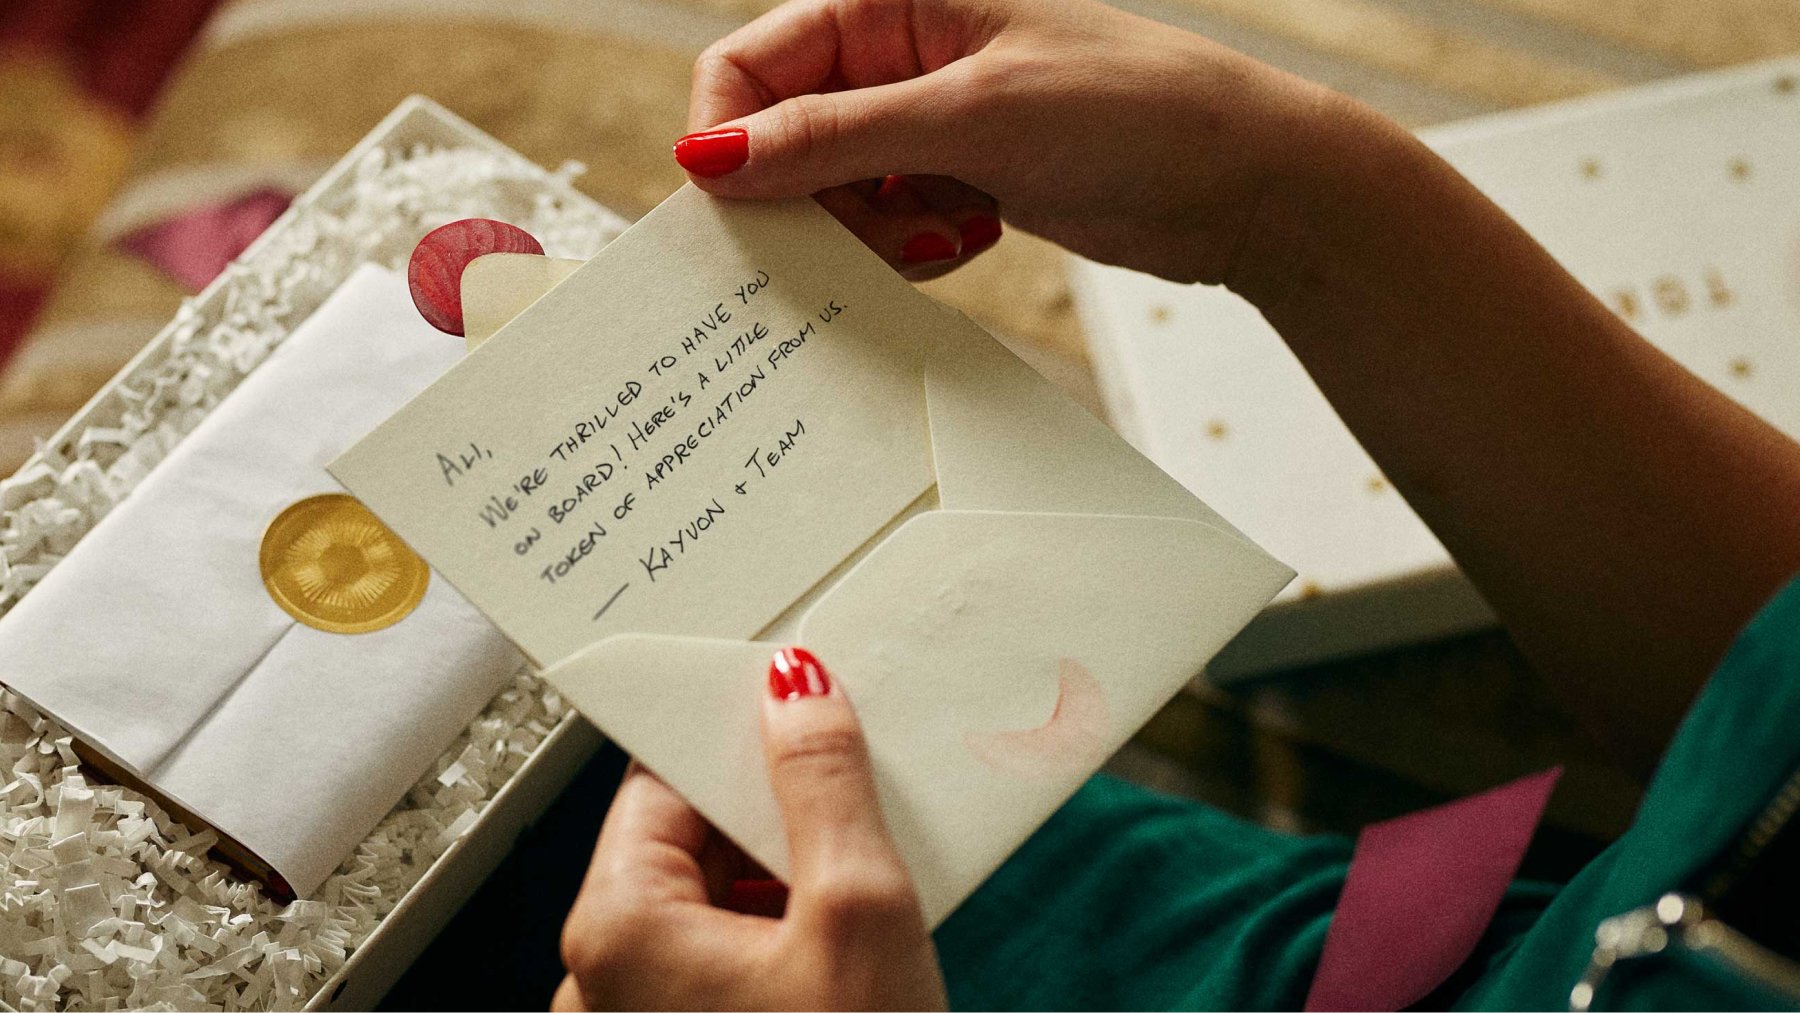 Ali,
We're thrilled to have you
on board! Here's a little
token of appreciation from us.
— Kayvon + Team